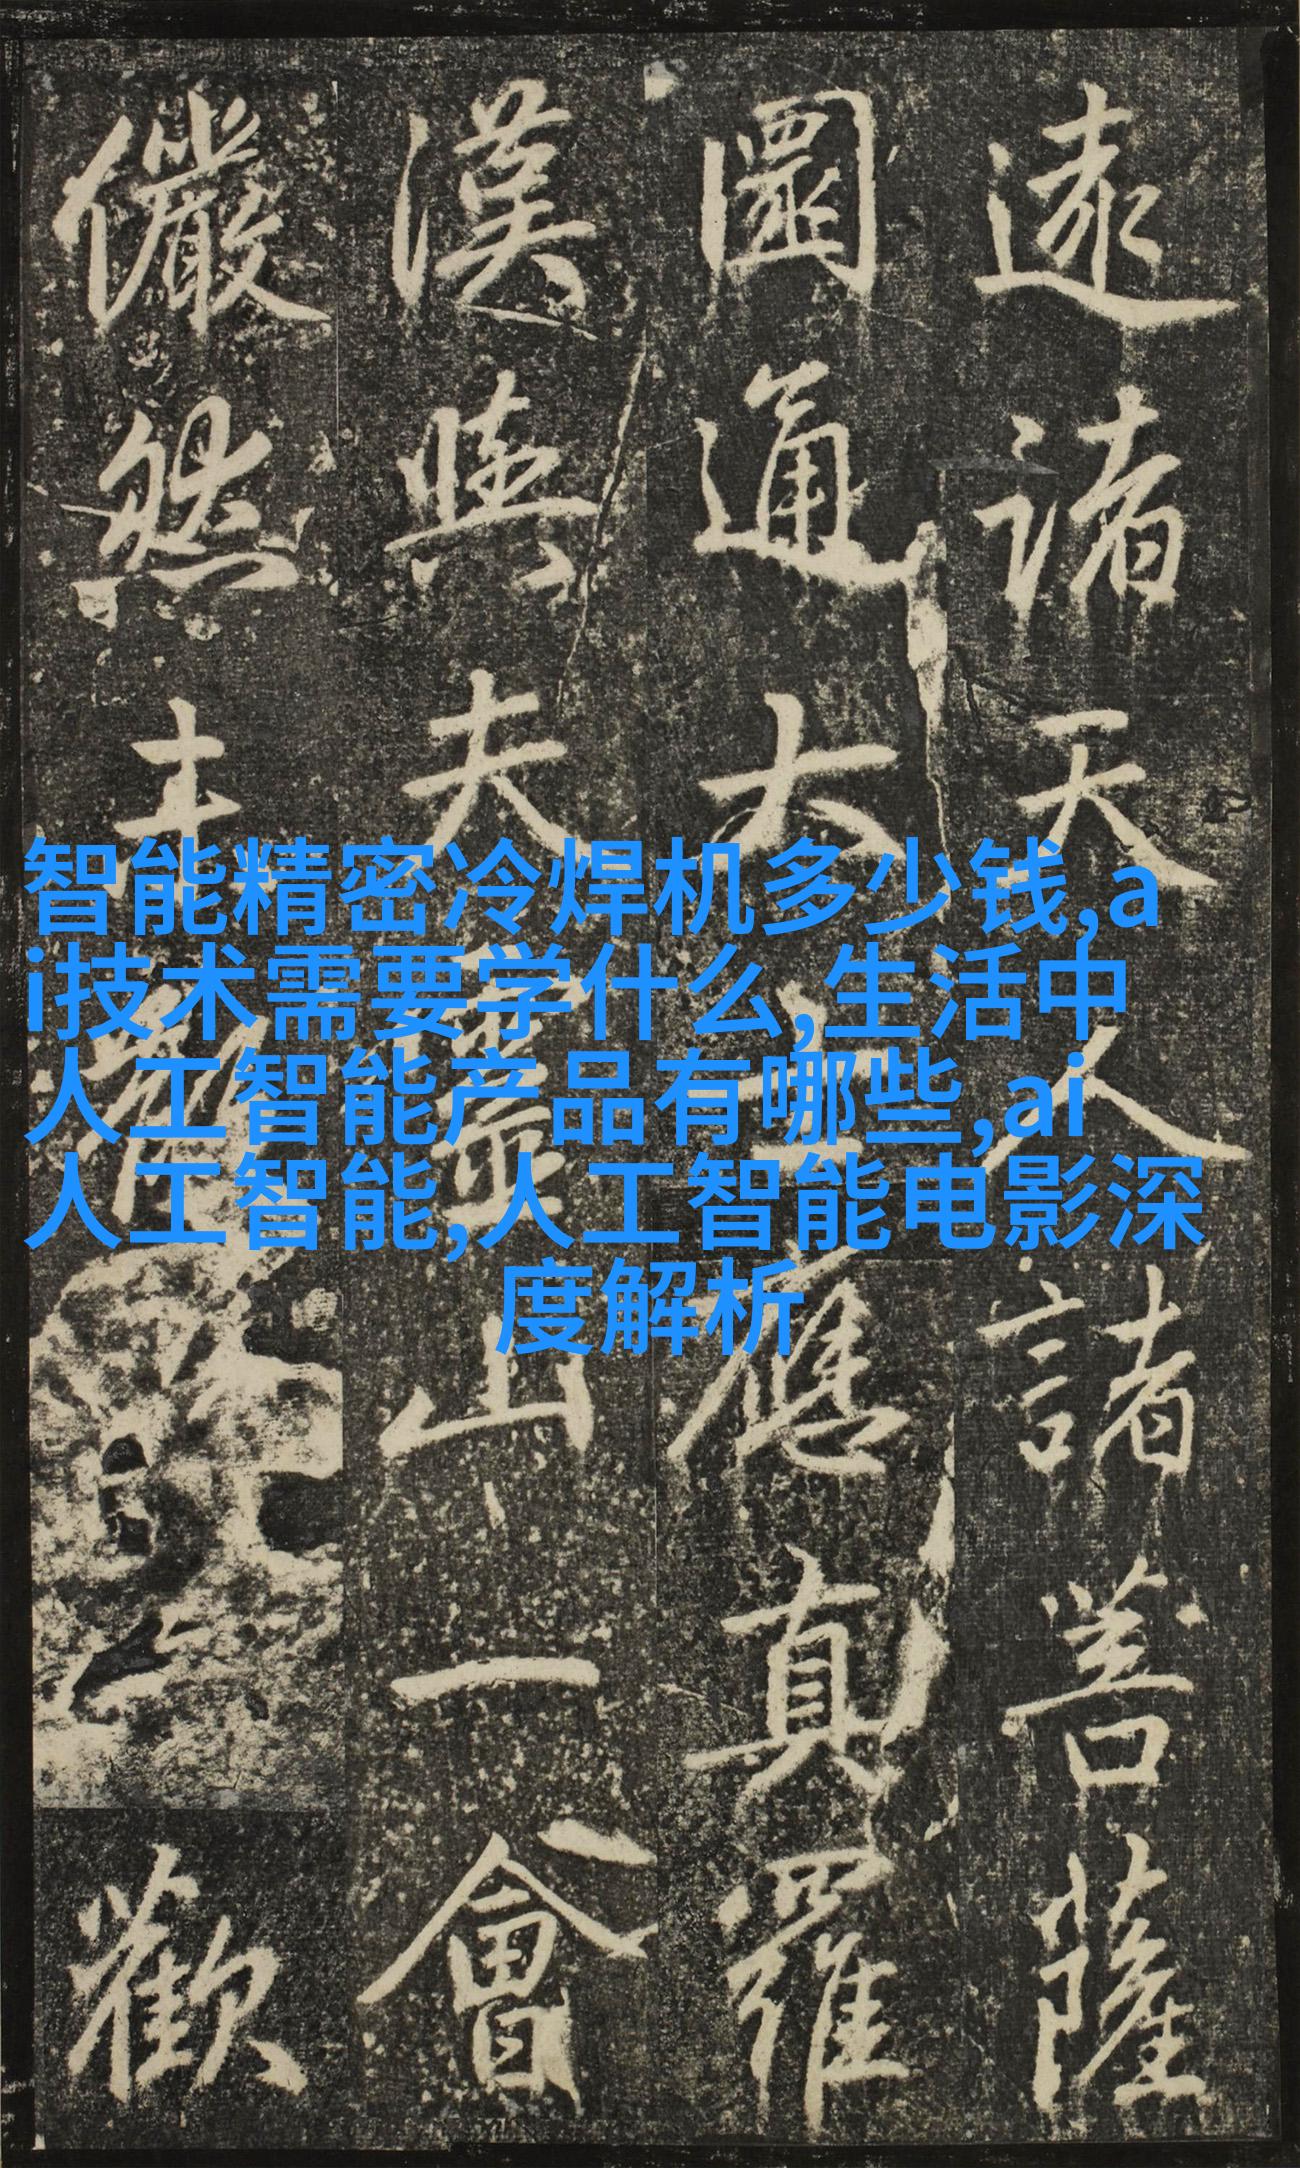 遠諸天人諸菩薩
圓通大士應真羅
漢與夫靈山一會
儼然未散歡
智能精密冷焊机多少钱,a
i技术需要学什么,生活中
人工智能产品有哪些,ai
人工智能,人工智能电影深
度解析